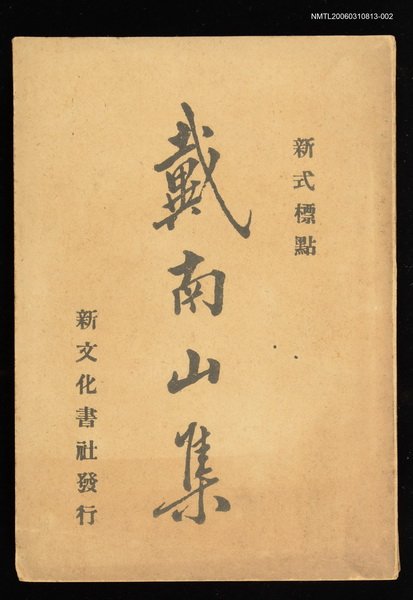 NMTL20060310813-002
新式標點
戴南山集
新文化書社發行